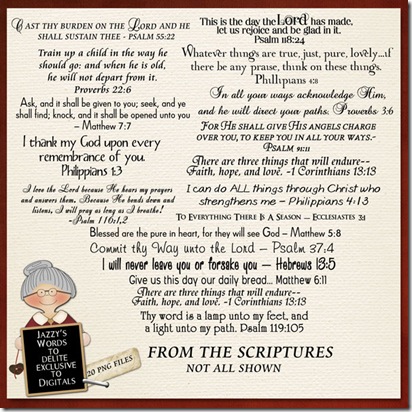 CAST THY BURDEN ON THE LORD AND HE
SHALL SUSTAIN THEE - PSALM 55:22
Train up a child in the way he
should go: and when he is old,
he will not depart from it.
Proverbs 22:6
Ask, and it shall be given to you; seek, and ye
shall find; knock, and it shall be opened unto you
– Matthew 7:7
I thank my God upon every
remembrance of you.
Philippians 1:3
I love the Lord because He hears my prayers
and answers them. Because He bends down and
listens, I will pray as long as I breathe!
-Psalm 116:1,2
This is the day the Lord has made,
let us rejoice and be glad in it.
Psalm 118:24
Whatever things are true, just, pure, lovely...if
there be any praise, think on these things.
Phillipians 4:8
In all your ways acknowledge Him,
and he will direct your paths. Proverbs 3:6
FOR HE SHALL GIVE HIS ANGELS CHARGE
OVER YOU, TO KEEP YOU IN ALL YOUR WAYS.-
PSALM 91:11
There are three things that will endure--
Faith, hope, and love. -1 Corinthians 13:13
I can do ALL things through Christ who
strengthens me – Philippians 4:13
TO EVERYTHING THERE IS A SEASON – ECCLESIASTES 3:1
Blessed are the pure in heart, for they will see God – Matthew 5:8
Commit thy Way unto the Lord – Psalm 37:4
I will never leave you or forsake you – Hebrews 13:5
Give us this day our daily bread... Matthew 6:11
There are three things that will endure--
Faith, hope, and love. -1 Corinthians 13:13
Thy word is a lamp unto my feet, and
a light unto my path. Psalm 119:105
FROM THE SCRIPTURES
NOT ALL SHOWN
JAZZY'S
WORDS
TO
DELITE
EXCLUSIVE
TO
DIGITALS
20 PNG FILES